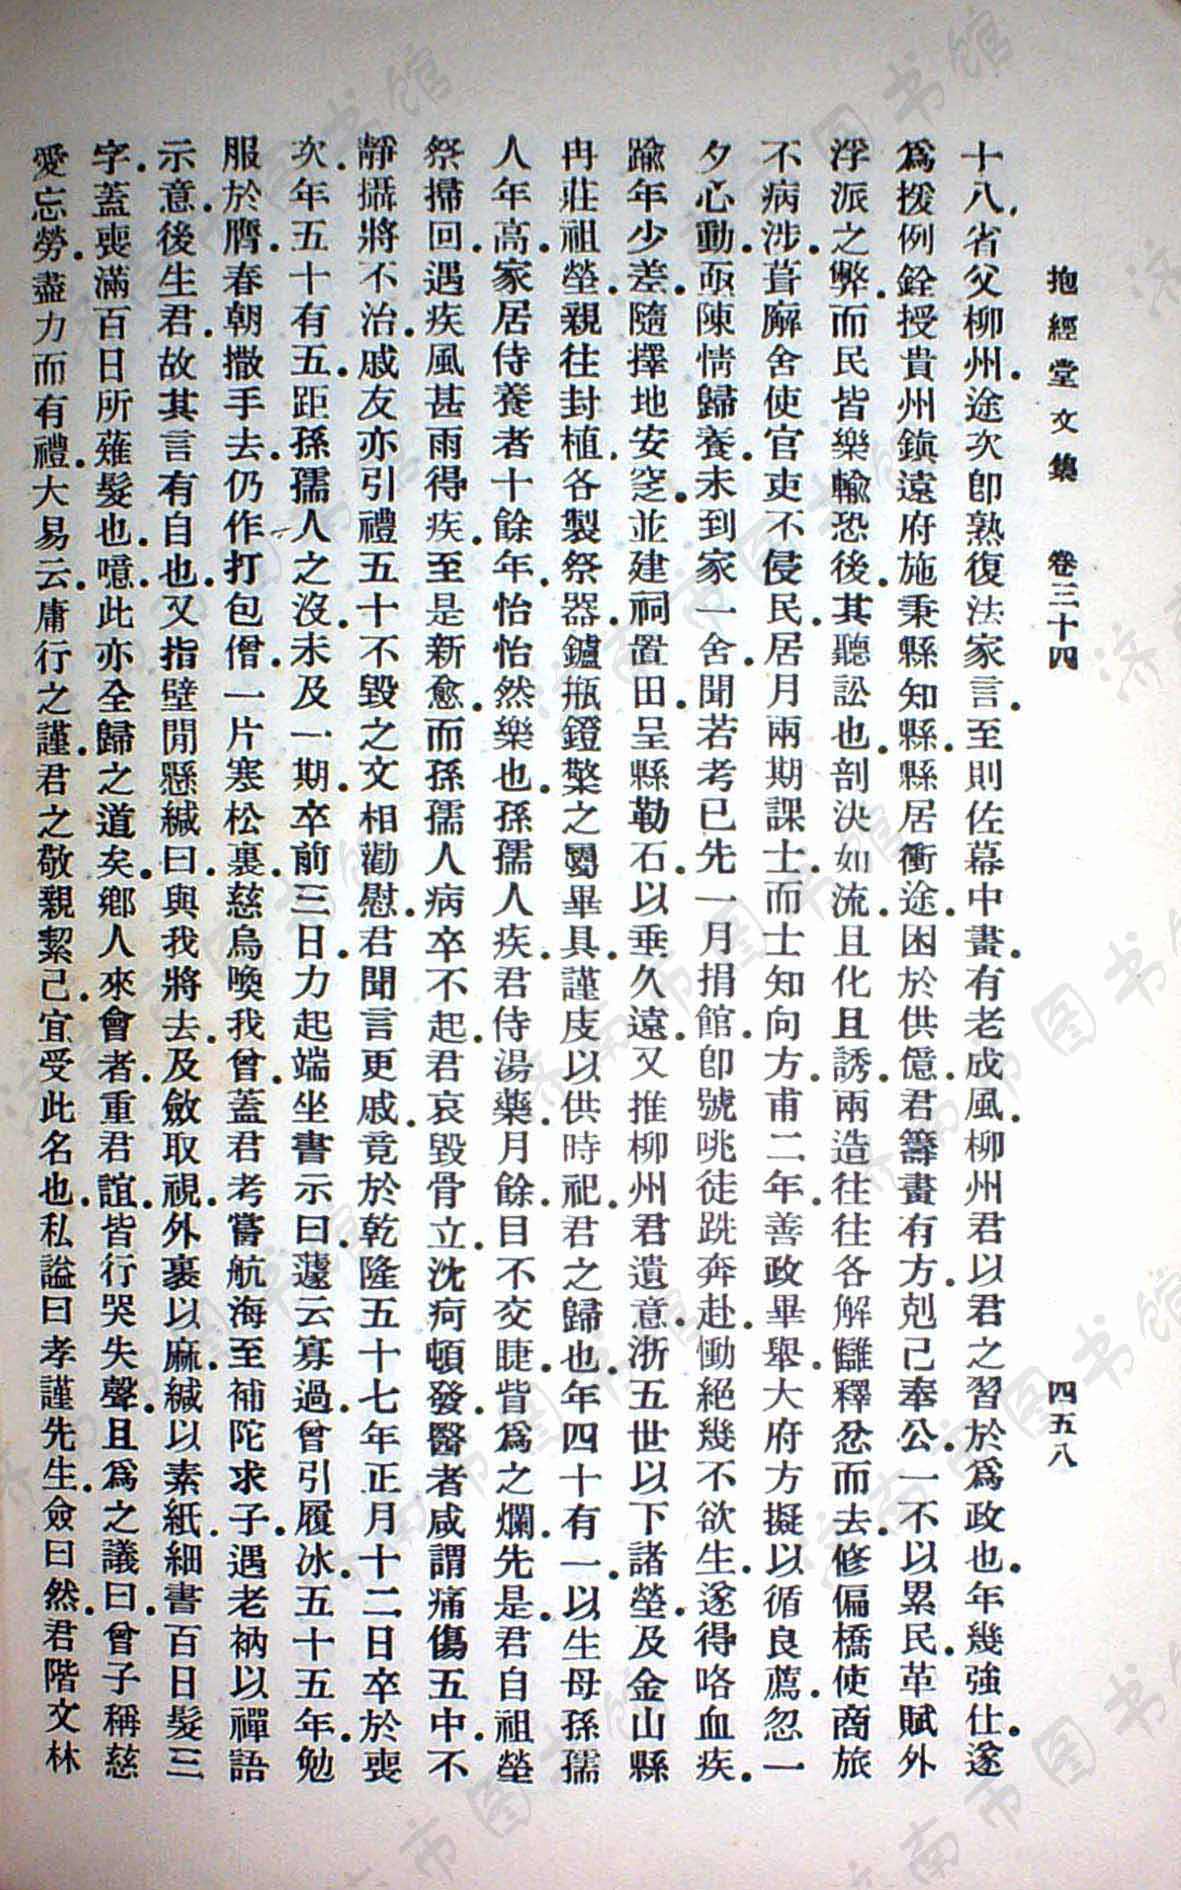 抱經堂文集　卷三十四　四五八
十八省父柳州．途次卽熟復法家言．至則佐幕中畫．有老成風．柳州君以君之習於爲政也．年幾強仕．遂
爲援例銓授貴州鎭遠府施秉縣知縣．縣居衝途．困於供億．君籌畫有方．剋己奉公．一不以累民．革賦外
浮派之弊．而民皆樂輸恐後．其聽訟也．剖決如流．且化且誘．兩造往往各解讎釋忿而去．修偏橋使商旅
不病涉．葺廨舍使官吏不侵民居．月兩期課士．而士知向方．甫二年．善政畢舉．大府方擬以循良薦．忽一
夕心動．亟陳情歸養．未到家一舍．聞若考已先一月捐館．卽號咷徒跣奔赴．慟絕幾不欲生．遂得咯血疾．
踰年少差．隨擇地安窆．並建祠置田．呈縣勒石．以垂久遠．又推柳州君遺意．浙五世以下諸塋．及金山縣
冉莊祖塋．親往封植．各製祭器．鑪甁鐙檠之屬畢具．謹庋以供時祀．君之歸也．年四十有一．以生母孫孺
人年高．家居侍養者十餘年．怡怡然樂也．孫孺人疾．君侍湯藥．月餘目不交睫．眥爲之爛．先是君自祖塋
祭掃回．遇疾風甚雨得疾．至是新愈．而孫孺人病卒不起．君哀毀骨立．沈疴頓發．醫者咸謂痛傷五中．不
靜攝將不治．戚友亦引禮五十不毀之文相勸慰．君聞言更戚．竟於乾隆五十七年正月十二日卒於喪
次．年五十有五．距孫孺人之沒．未及一期．卒前三日．力起端坐書示曰．蘧云寡過．曾引履冰．五十五年．勉
服於膺．春朝撒手去．仍作打包僧．一片寒松裏．慈烏喚我曾．蓋君考嘗航海至補陀求子．遇老衲以禪語
示意．後生君．故其言有自也．又指壁閒懸緘曰．與我將去．及斂取視．外裹以麻．緘以素紙．細書百日髮三
字．蓋喪滿百日所薙髮也．噫．此亦全歸之道矣．鄕人來會者．重君誼．皆行哭失聲．且爲之議曰．曾子稱慈
愛忘勞．盡力而有禮．大易云．庸行之謹．君之敬親絜己．宜受此名也．私謚曰孝謹先生．僉曰然．君階文林